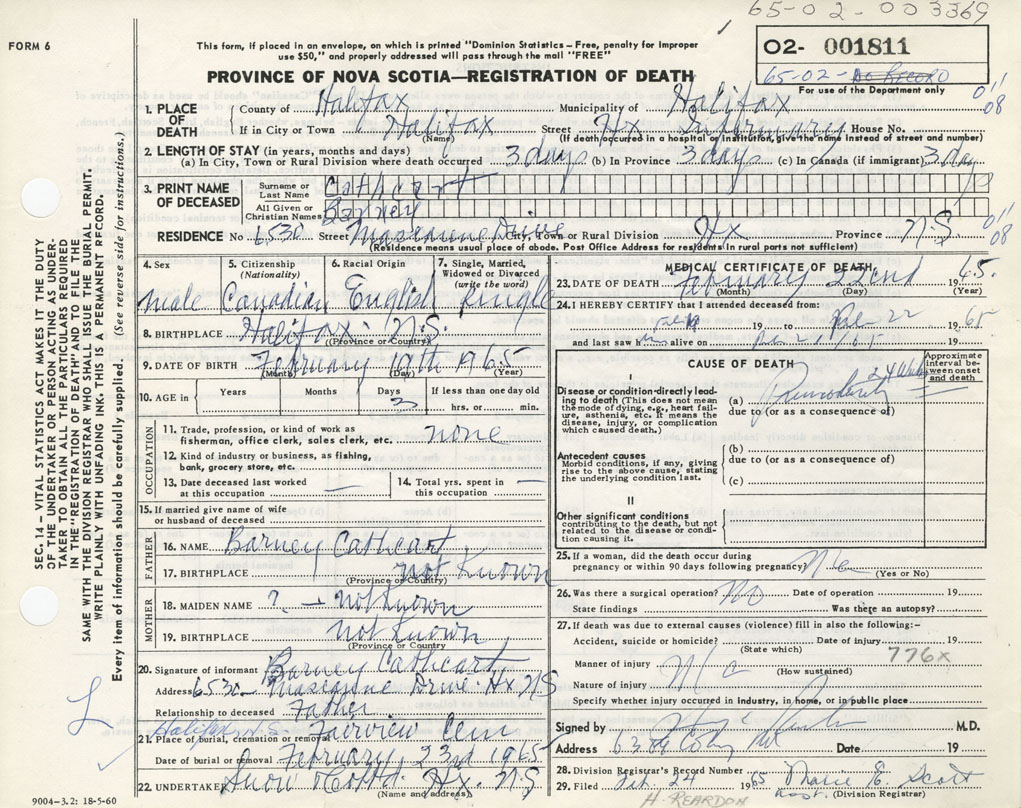 65-02-003369
FORM 6
This form, if placed in an envelope, on which is printed "Dominion Statistics – Free, penalty for improper
use $50," and properly addressed will pass through the mail "FREE"
O2- 001811
65-02- No Record
For use of the Department only
PROVINCE OF NOVA SCOTIA—REGISTRATION OF DEATH
1. PLACE OF DEATH
County of Halifax Municipality of Halifax
011
08
If in City or Town Halifax Street Hx Infirmary House No.
(Name) (If death occurred in a hospital or institution, give the name instead of street and number)
2. LENGTH OF STAY (in years, months and days)
(a) In City, Town or Rural Division where death occurred 3 days (b) In Province 3 days (c) In Canada (if immigrant) 3 day
3. PRINT NAME OF DECEASED
Surname or Last Name Cathcart
All Given or Christian Names Barney
RESIDENCE No. 6530 Street Drive City, Town or Rural Division Hx Province N.S.
011
08
(Residence means usual place of abode. Post Office Address for residents in rural parts not sufficient)
4. Sex 5. Citizenship (Nationality) 6. Racial Origin 7. Single, Married, Widowed or Divorced (write the word)
Male Canadian English Single
8. BIRTHPLACE Halifax N.S.
(Province or Country)
9. DATE OF BIRTH February 19th 1965
(Month) (Day) (Year)
10. AGE in Years Months Days 3 If less than one day old hrs. or min.
OCCUPATION
11. Trade, profession, or kind of work as
fisherman, office clerk, sales clerk, etc. none
12. Kind of industry or business, as fishing,
bank, grocery store, etc.
13. Date deceased last worked
at this occupation —
14. Total yrs. spent in
this occupation —
15. If married give name of wife
or husband of deceased
FATHER
16. NAME Barney Cathcart
17. BIRTHPLACE not Known
(Province or Country)
MOTHER
18. MAIDEN NAME ? — not Known
19. BIRTHPLACE not Known
(Province or Country
20. Signature of informant Barney Cathcart
Address 6530 Drive Hx NS
Relationship to deceased Father
Halifax, N.S.
21. Place of burial, cremation or removal Fairview Cem
Date of burial or removal February 23rd 1965
22. UNDERTAKER Snow Hx. N.S
(Name and address)
MEDICAL CERTIFICATE OF DEATH
23. DATE OF DEATH February 22nd 1965.
(Month) (Day) (Year)
24. I HEREBY CERTIFY that I attended deceased from:
Feb 19 19 to Feb 22 1965
and last saw him alive on
CAUSE OF DEATH
Approximate interval between onset and death
I
Disease or condition directly leading to death (This does not mean the mode of dying, e.g., heart failure, asthenia, etc. It means the disease, injury, or complication which caused death.)
(a) Prematurity
due to (or as a consequence of)
Antecedent causes
Morbid conditions, if any, giving rise to the above cause, stating the underlying condition last.
(b)
due to (or as a consequence of)
(c)
II
Other significant conditions
contributing to the death, but not related to the disease or condition causing it.
25. If a woman, did the death occur during
pregnancy or within 90 days following pregnancy?
(Yes or No)
26. Was there a surgical operation? No Date of operation 19
State findings Was there an autopsy?
27. If death was due to external causes (violence) fill in also the following:–
Accident, suicide or homicide? Date of injury 19
(State which)
776x
Manner of injury
(How sustained)
Nature of injury
Specify whether injury occurred in Industry, in home, or in public place
Signed by M.D.
Address Date 19
28. Division Registrar's Record Number
29. Filed Feb. 24 1965 Marie E. Scott
Asst. (Division Registrar)
H. REARDON
SEC. 14 – VITAL STATISTICS ACT MAKES IT THE DUTY
OF THE UNDERTAKER OR PERSON ACTING AS UNDER-
TAKER TO OBTAIN ALL THE PARTICULARS REQUIRED
IN THE "REGISTRATION OF DEATH" AND TO FILE THE
SAME WITH THE DIVISION REGISTRAR WHO SHALL ISSUE THE BURIAL PERMIT.
WRITE PLAINLY WITH UNFADING INK. THIS IS A PERMANENT RECORD.
Every item of information should be carefully supplied. (See reverse side for instructions.)
9004-3.2: 18-5-60